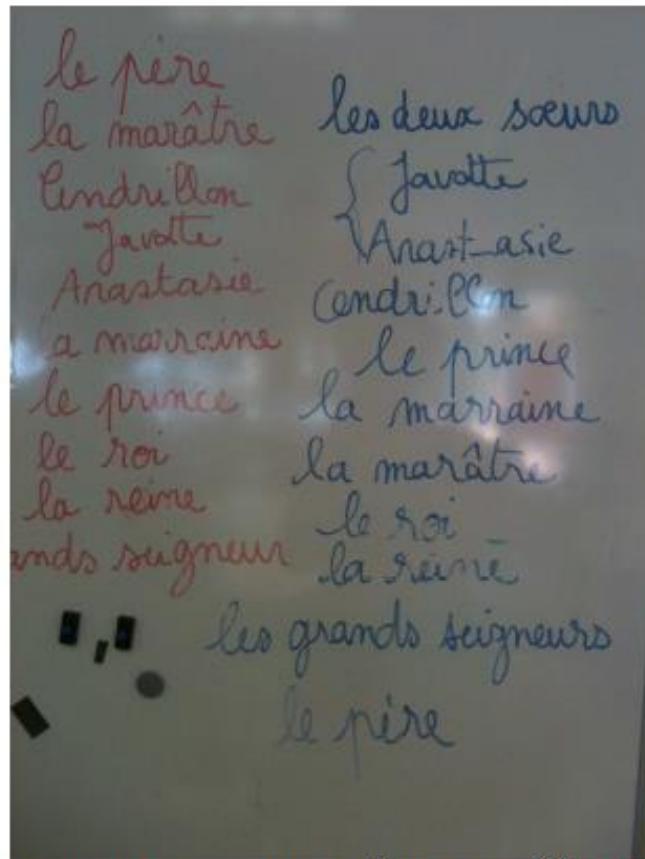 le père
la marâtre
Cendrillon
Javotte
Anastasie
la marraine
le prince
le roi
la reine
ands seigneur
les deux sœurs
Javotte
Anast-asie
Cendrillon
le prince
la marraine
la marâtre
le roi
la reine
les grands seigneurs
le père